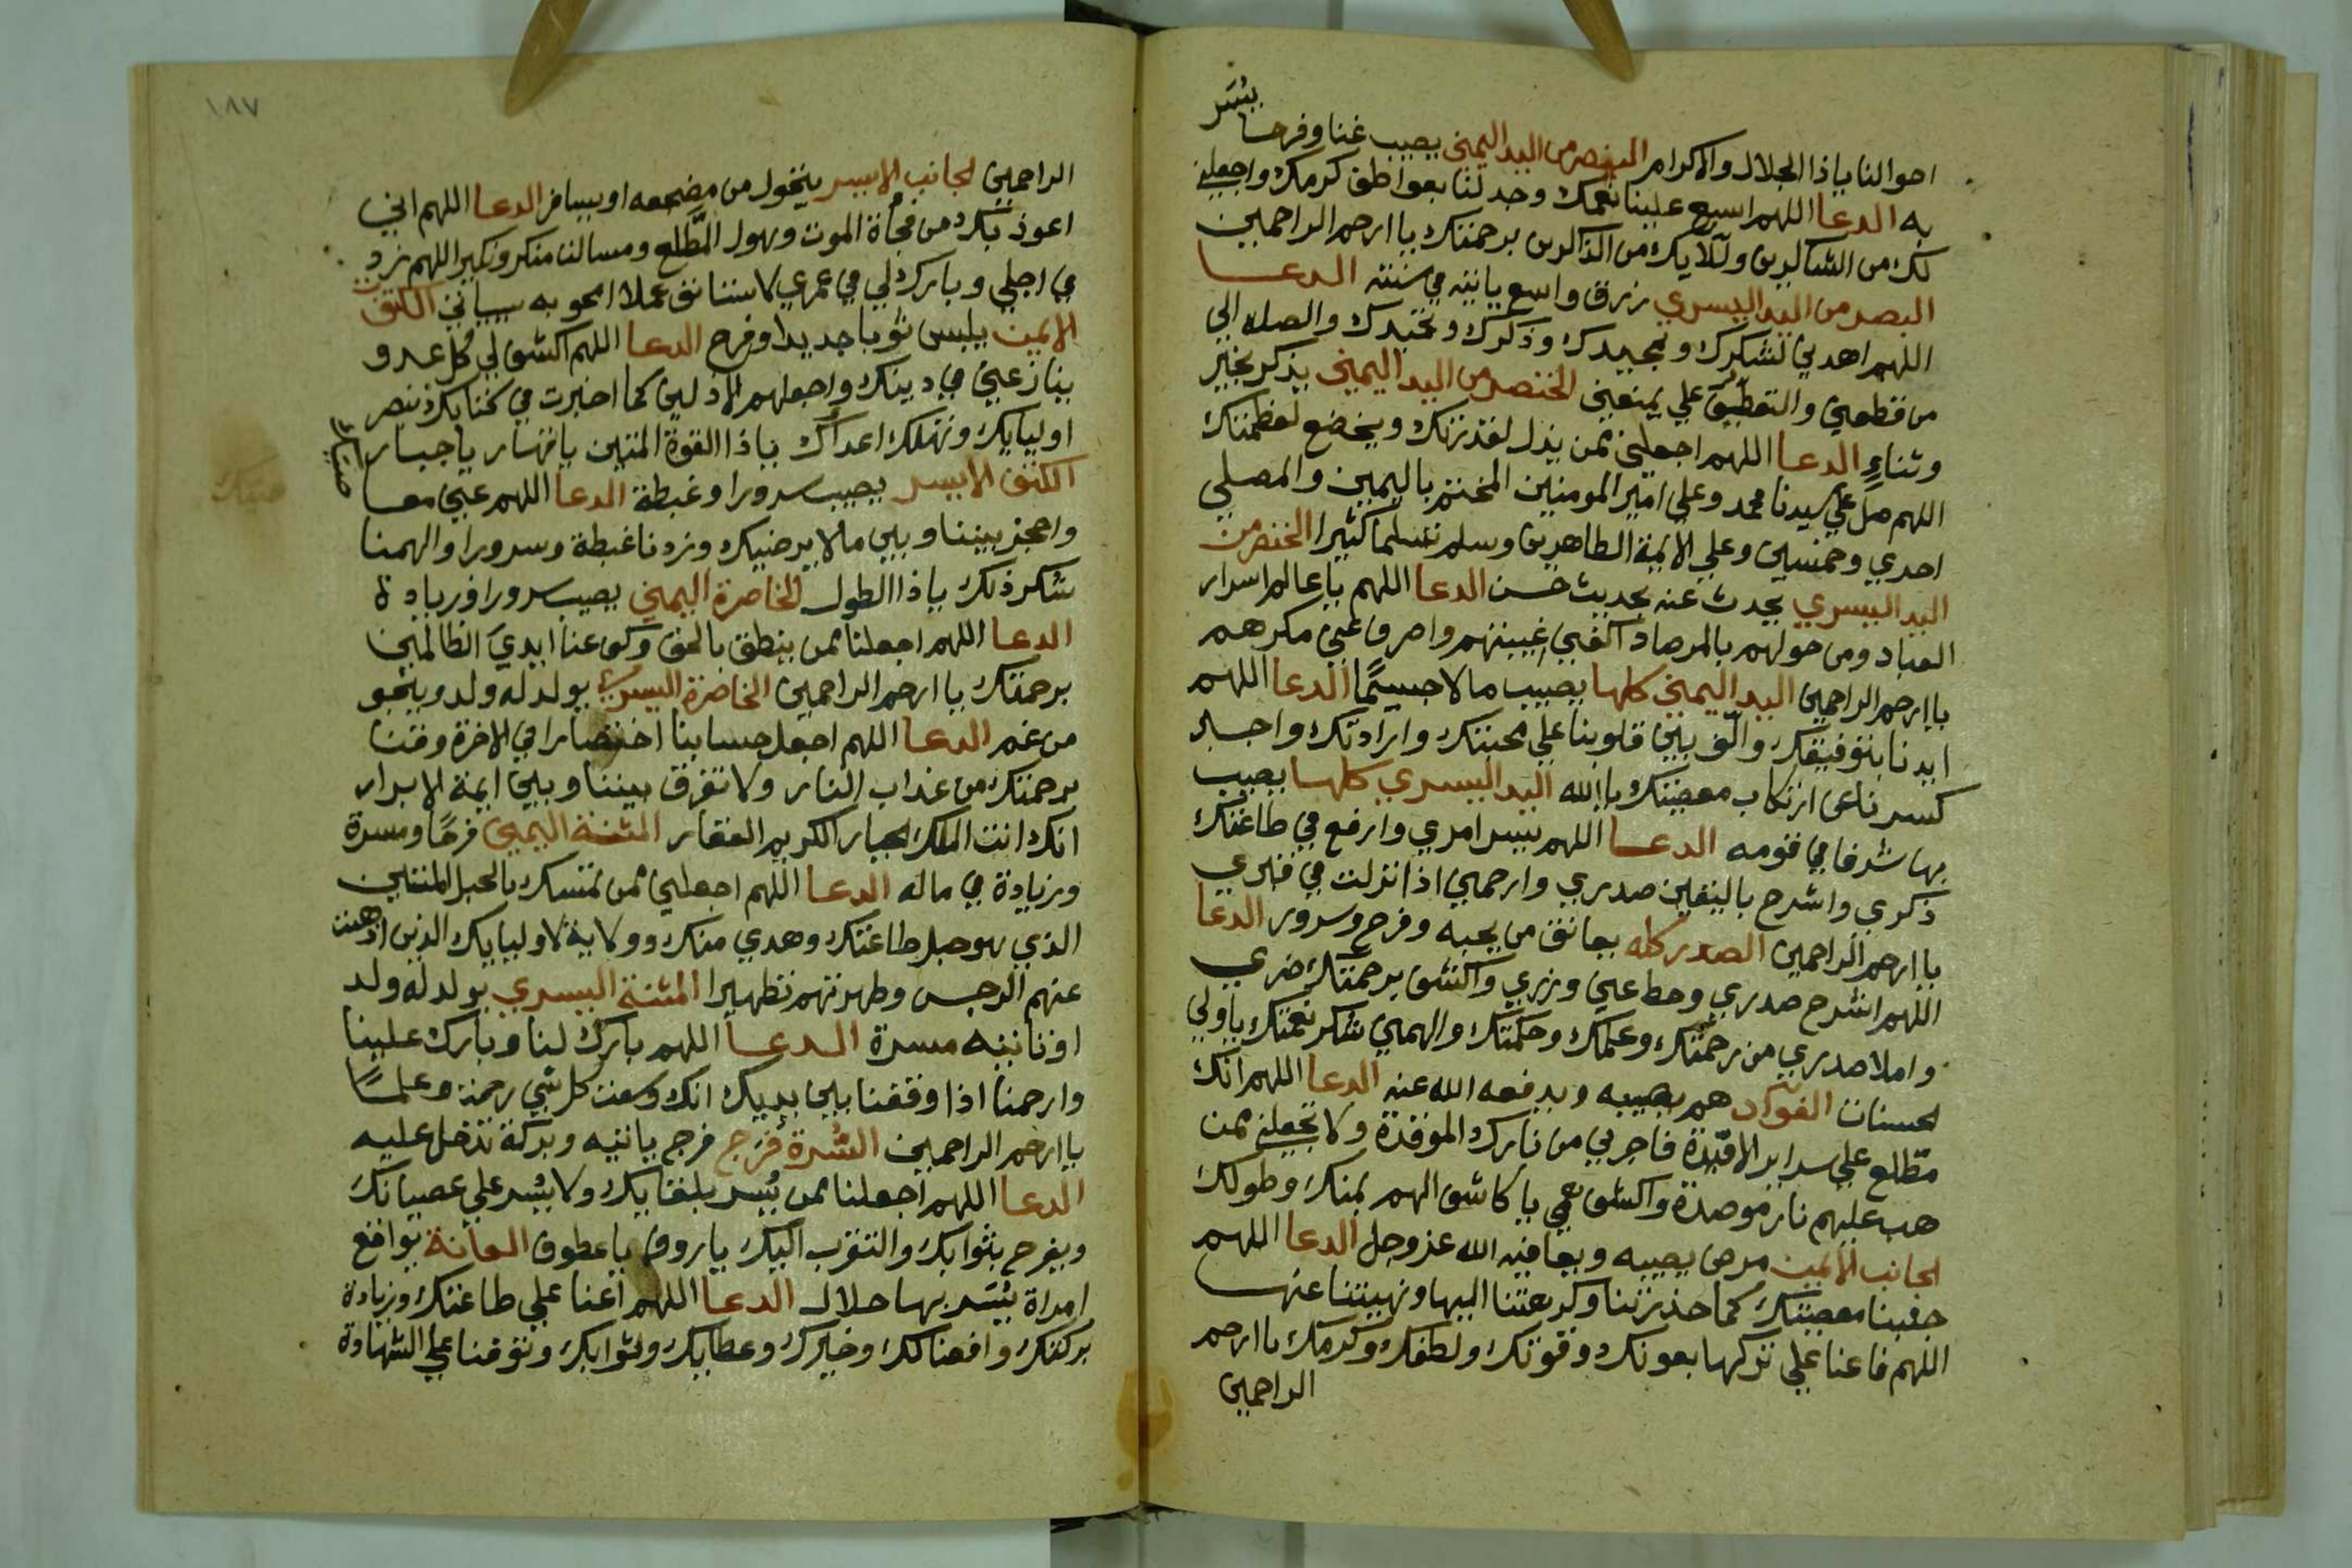 يسر
احوالنا ياذا الجلال والاكرام البنصر من اليد اليمني يصيب غنا وفرحا
به الدعا اللهم اسبع علينا نعمك وجد لنا بعواطف كرمك واجعلني
لك من الشاكرين ولآلايك من الذاكرين برحمتك يا ارحم الراحمين
البصر من اليد اليسري رزق واسع ياتيه في سنته الدعا
اللهم اهدني لشكرك وتمجيدك وذكرك وتحميدك والصله الي
من قطعني والتعطف علي يمنعني الخنصر من اليد اليمني يذكر بخير
وثناءٍ الدعا اللهم اجعلني ممن يذل لقدرتك ويخضع لعظمتك
اللهم صل علي سيدنا محمد وعلي امير المومنين المختتم باليمين والمصلي
احدي وخمسين وعلي الايمة الطاهرين وسلم تسليما كثيرا الخنصر من
اليد اليسري يحدث عنه بحديث حسن الدعا اللهم ياعالم اسرار
العباد ومن حولهم بالمرصاد اكفني غيبتهم واصرف عني مكرهم
يا ارحم الراحمين اليد اليمني كلها يصيب مالا جسيمًا الدعا اللهم
ايدنا بتوفيقك والّف بين قلوبنا علي محبتك وارادتك واجبار
كسرنا عن ارتكاب معصيتك يا الله اليد اليسري كلها يصيب
بها شرفا في قومه الدعا اللهم يسر امري وارفع في طاعتك
ذكري واشرح باليقين صدري وارحمني اذا نزلت في قبري
يا ارحم الراحمين الصدر كله يعانق من يحبه وفرح وسرور الدعا
اللهم اشرح صدري وحط عني وزري واكشف برحمتك ضري
واملا صدري من رحمتك وعلمك وحكمتك والهمني شكر نعمتك ياولي
لحسنات الفوكاد هم يصيبه ويدفعه الله عنه الدعا اللهم انك
مطلع علي سراير الافيدة فاجرني من نارك الموقدة ولا تجعلني ممن
هب عليهم نار موصدة واكشف همي يا كاشف الهم بمنك وطولك
لجانب الايمن مرض يصيبه ويعافيه الله عزوجل الدعا اللهم
جنبنا معصيتك كما حذرتنا وكرهتنا اليها ونهيتنا عنها
اللهم فاعنا علي تركها بعونك وقوتك ولطفك وكرمك يا ارحم
الراحمين
١٨٧
الراحمين لجانب الايسر يتحول من مضجعه او يسافر الدعا اللهم اني
اعوذ بك من فجأة الموت وهول المطّلع ومسالت منكر ونكير اللهم زد
في اجلي وبارك لي في عمري لاستانف عملا امحو به سياتي الكتف
الايمن يلبس ثوبا جديدا وفرح الدعا اللهم اكشف لي كل عدو
ينازعني في دينك واجعلهم الاذلين كما اخبرت في كتابك وتنصر
اوليايك وتهلك اعداك ياذا القوة المتين ياقهار ياجبار
الكتف الايسر يصيب سرورا وغبطة الدعا اللهم عني معا
صيك
واحجز بيننا وبين مالا يرضيك وزدنا غبطة وسرورا والهمنا
شكر ذلك ياذا الطول الخاصرة اليمني يصيب سرورا وزيادة
الدعا اللهم اجعلنا ممن ينطق بالحق وكف عنا ايدي الظالمين
برحمتك يا ارحم الراحمين الخاصرة اليسري يولد له ولد وينجو
من غم الدعا اللهم اجعل حسابنا اختصارا في الاخرة وقنا
برحمتك من عذاب النار ولا تفرق بيننا وبين ايمة الابرار
انك انت الملك الجبار الكريم الغفار المثنة اليمين فرحًا ومسرة
وزيادة في ماله الدعا اللهم اجعلني ممن تمتسك بالحبل المتين
الذي هو حبل طاعتك وهدي منك وولاية لاوليايك الذين اذهبت
عنهم الرجس وطهرتهم تطهيرا المثنة اليسري يولد له ولد
او تاتيه مسرة الدعا اللهم بارك لنا وبارك علينا
وارحمنا اذا وقفنا بين يديك انك وسعت كل شي رحمة وعلمًا
يا ارحم الراحمين السُرة فرج فرج ياتيه وبركة تدخل عليه
الدعا اللهم اجعلنا ممن يُسر بلقايك ولا يسر علي عصيانك
ويفرح بثوابك والتقرب اليك ياروف ياعطوف العانة يواقع
امراة يسر بها حلال الدعا اللهم اعنا علي طاعتك وزيادة
بركتك وافضالك وخيرك وعطايك وثوابك وتوفنا علي الشهادة